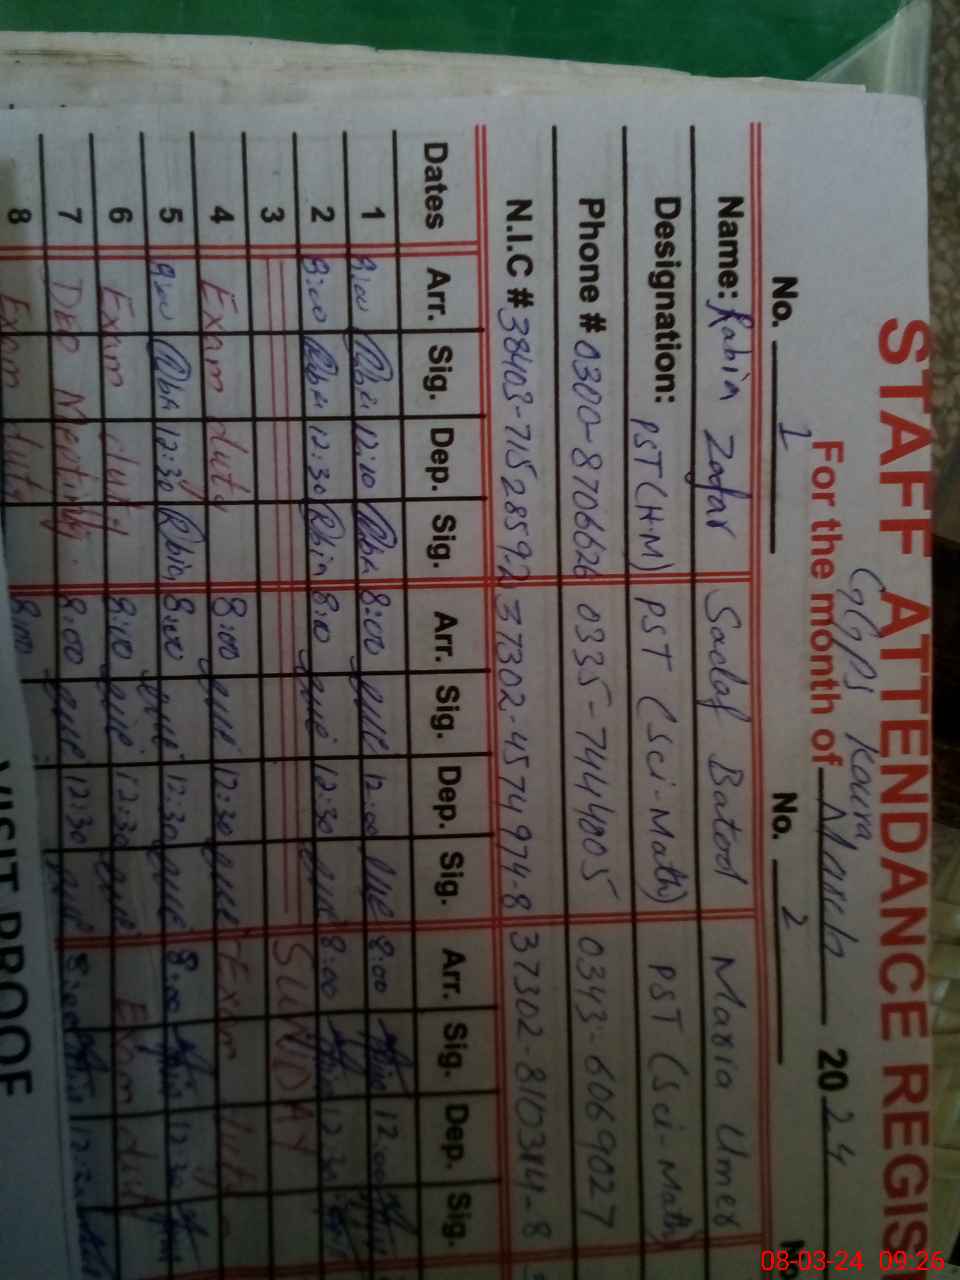 STAFF ATTENDANCE REGIS
GGPS Kaura
For the month of March 2024
No. 1 No. 2
Name: Rabia Zafar Sadaf Batool Maria Umer
Designation: PST (H.M) PST (Sci-Math) PST (Sci-Math)
Phone # 0300-8706626 0335-7444005 0343-6069027
N.I.C # 38403-7152859-2 37302-4574974-8 37302-8103814-8
Dates Arr. Sig. Dep. Sig. Arr. Sig. Dep. Sig. Arr. Sig. Dep. Sig.
1 12:10 8:00 12:00 8:00 12:00
2 12:30 8:00 12:30 8:00 12:30
3 SUNDAY
4 Exam duty 8:00 12:30 Exam duty
5 12:30 8:00 12:30 8:00 12:30
6 Exam duty 8:00 12:30 Exam duty
7 DEO Meeting. 8:00 12:30 8:00 12:30
8 Exam duty 8:00
VISIT PROOF
08-03-24 09:26